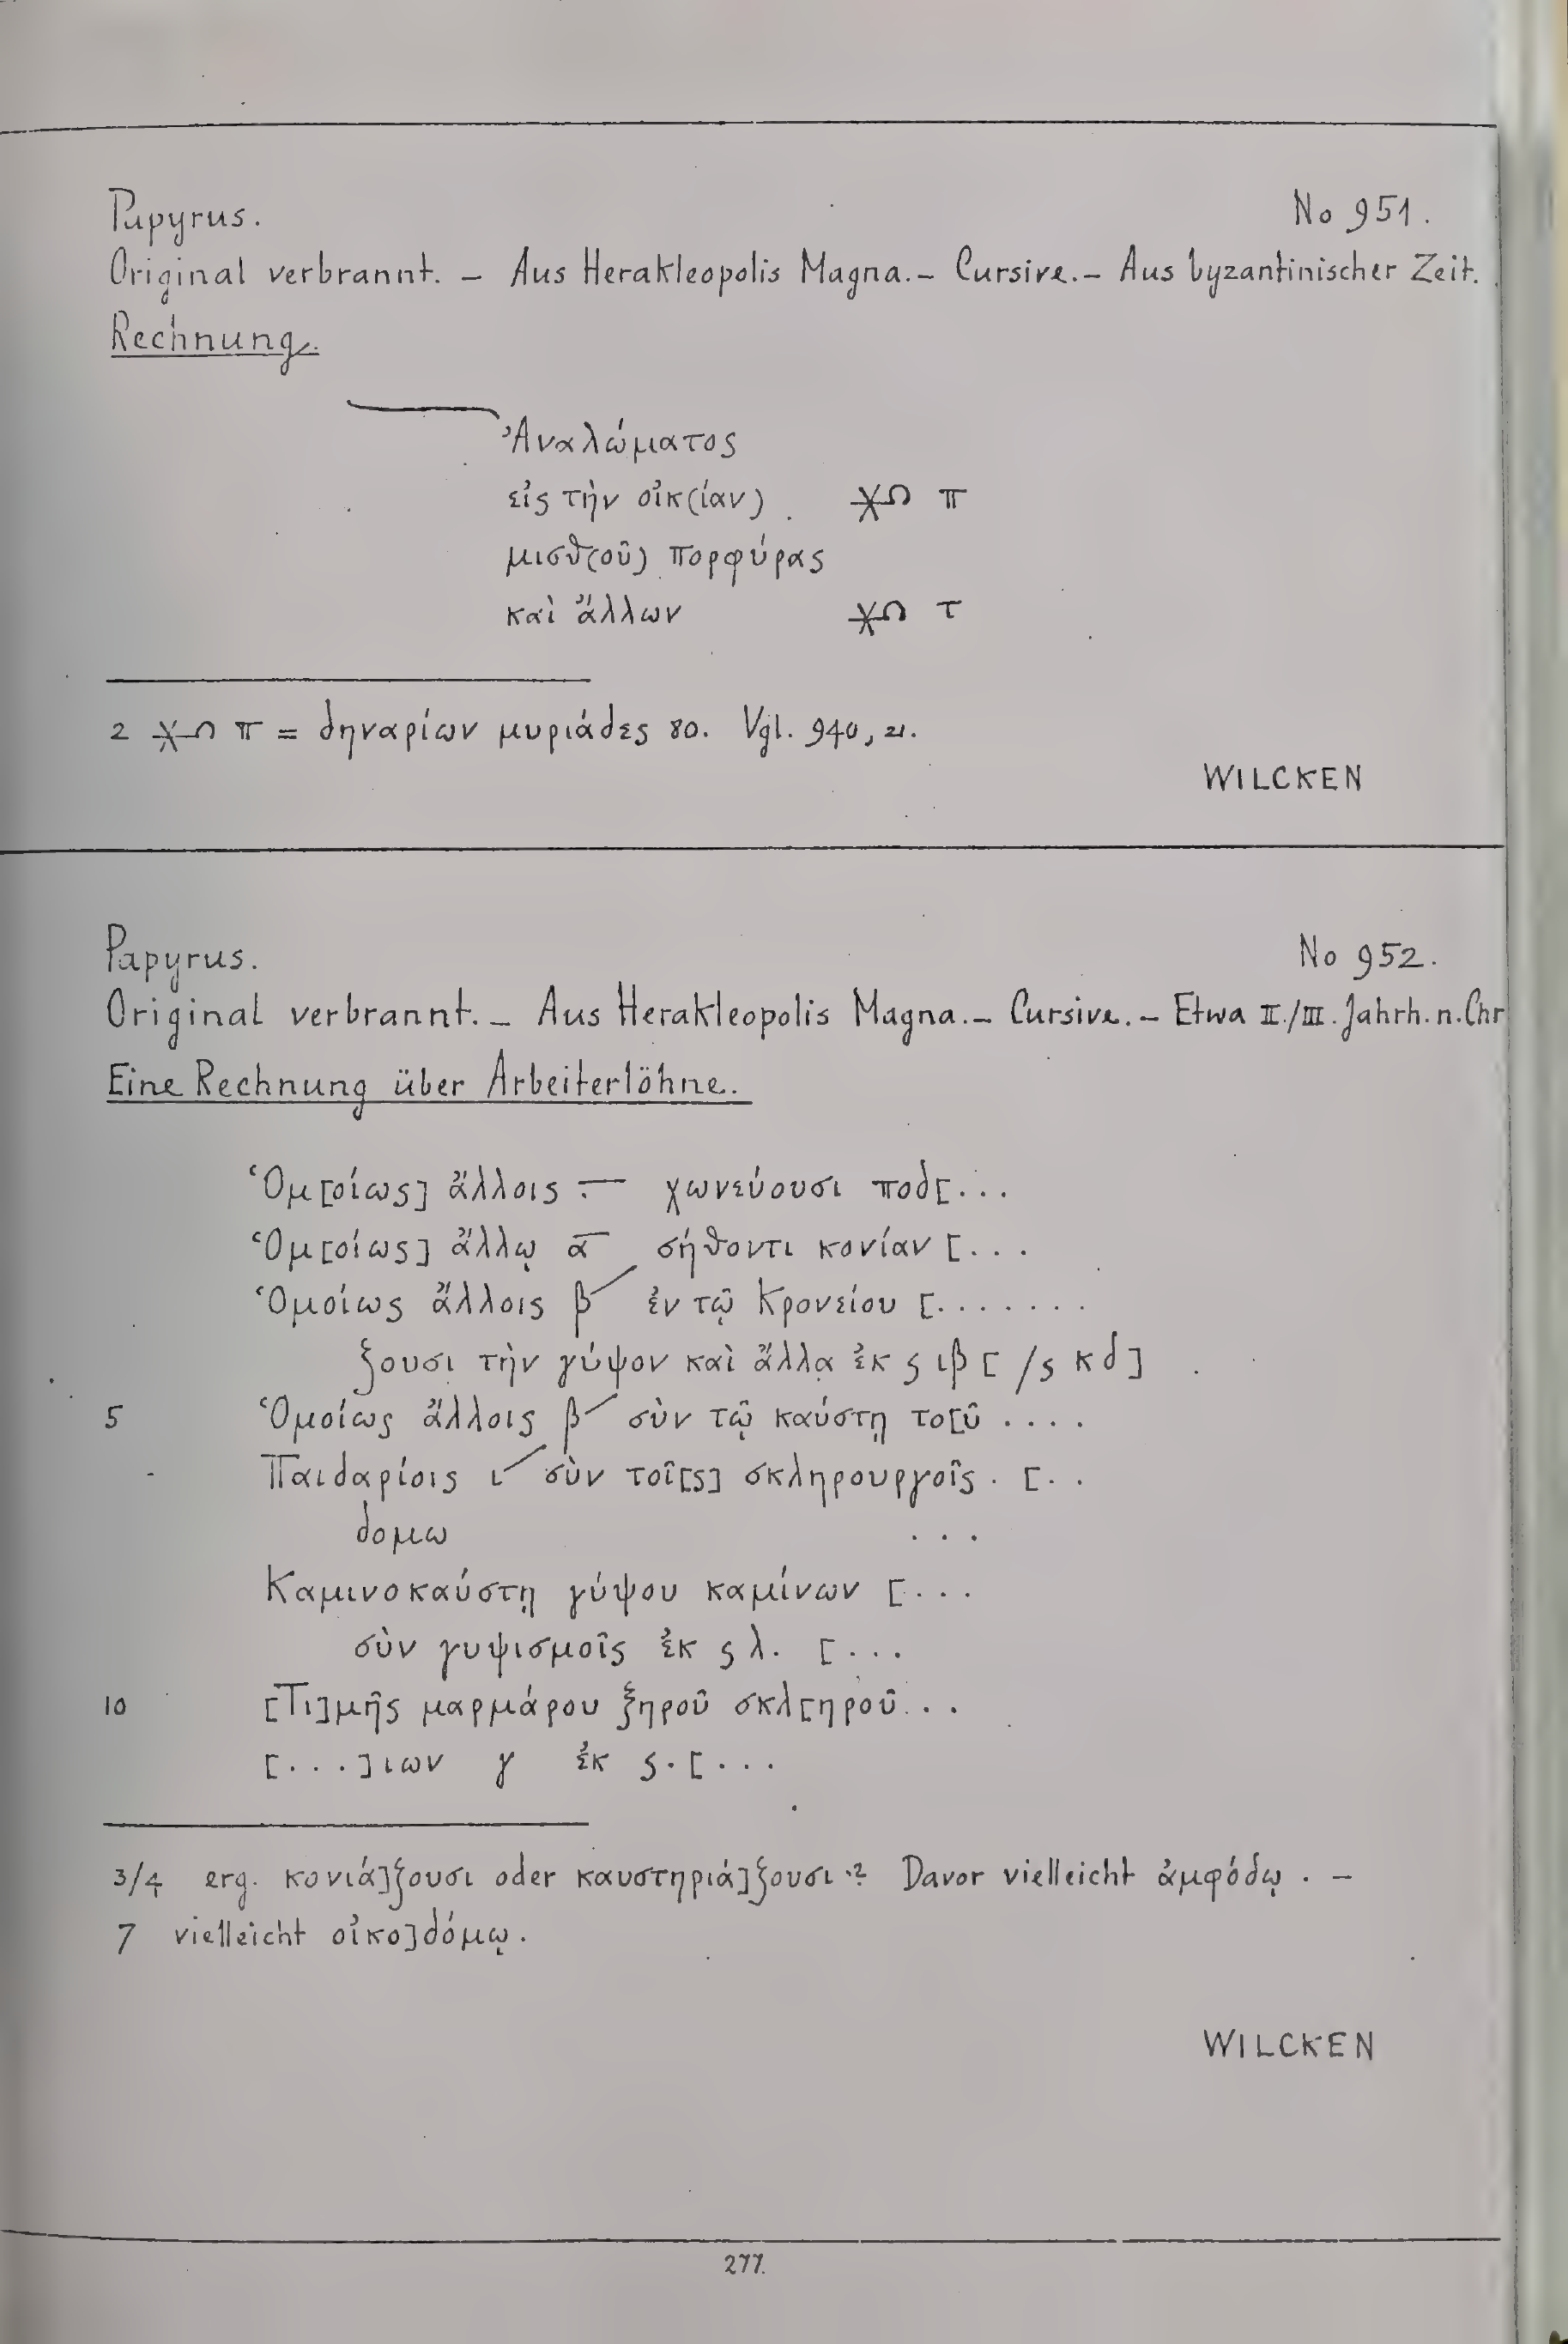 Papyrus. No 951.
Original verbrannt. – Aus Herakleopolis Magna. – Cursive. – Aus byzantinischer Zeit.
Rechnung.
Ἀναλώματος
εἰς τὴν οἰκ(ίαν) . π
μισθ(οῦ) πορφύρας
καὶ ἄλλων τ
2 π = δηναρίων μυριάδες 80. Vgl. 940, 21.
WILCKEN
Papyrus. No 952.
Original verbrannt. – Aus Herakleopolis Magna. – Cursive. – Etwa II./III. Jahrh. n. Chr
Eine Rechnung über Arbeiterlöhne.
Ὁμ[οίως] ἄλλοις . χωνεύουσι ποδ[...
Ὁμ[οίως] ἄλλῳ α̅ σήθοντι κονίαν [...
Ὁμοίως ἄλλοις β ἐν τῷ Κρονείου [.......
ζουσι τὴν γύψον καὶ ἄλλα ἐκ ς ιβ [ /ς κδ]
5 Ὁμοίως ἄλλοις β σὺν τῷ καύστῃ το[ῦ ....
Παιδαρίοις ι σὺν τοῖ[ς] σκληρουργοῖς . [..
δομω ...
Καμινοκαύστῃ γύψου καμίνων [...
σὺν γυψισμοῖς ἐκ ς λ. [...
10 [Τι]μῆς μαρμάρου ξηροῦ σκλ[ηροῦ ..
[...]ιων γ ἐκ ς . [...
3/4 erg. κονιά]ζουσι oder καυστηριά]ζουσι? Davor vielleicht ἀμφόδῳ. –
7 vielleicht οἰκο]δόμῳ.
WILCKEN
277.